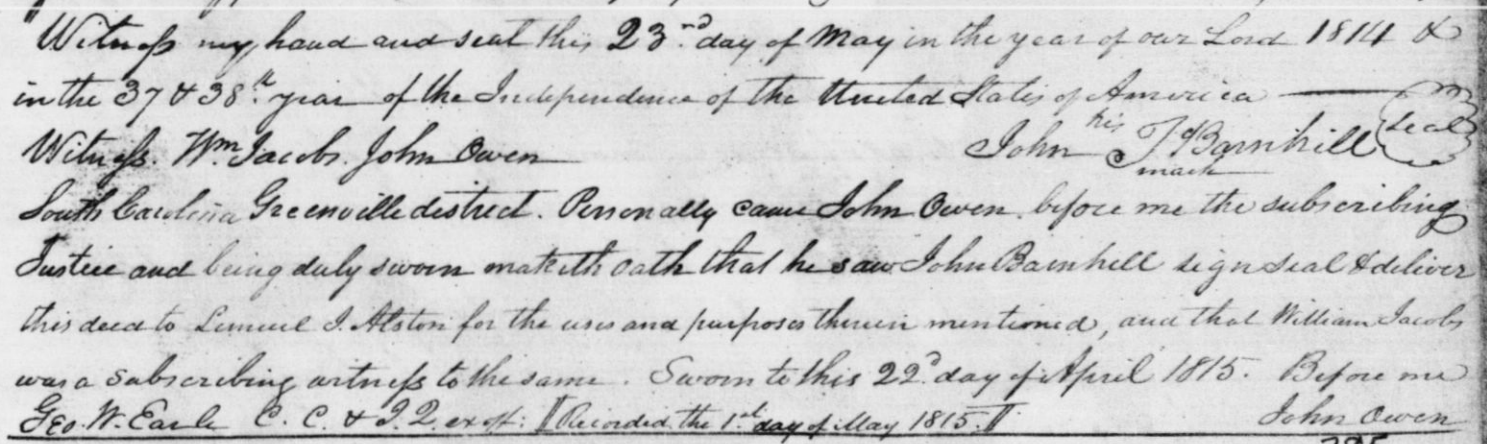 Witness my hand and seal this 23rd day of May in the year of our Lord 1814 &
in the 37 & 38th year of the Independence of the United States of America
Witness. Wm Jacobs. John Owen John his J Barnhill Seal
mark
South Carolina Greenville district. Personally came John Owen before me the subscribing
Justice and being duly sworn maketh oath that he saw John Barnhill sign seal & deliver
this deed to Lemuel J. Alston for the uses and purposes therein mentioned, and that William Jacobs
was a subscribing witness to the same. Sworn to this 22d day of April 1815. Before me
Geo. W. Earle C. C. & J. Q. ex off: Recorded the 1st day of May 1815. John Owen